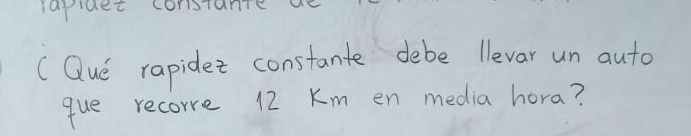 rapidez constante de
¿Qué rapidez constante debe llevar un auto
que recorre 12 Km en media hora?